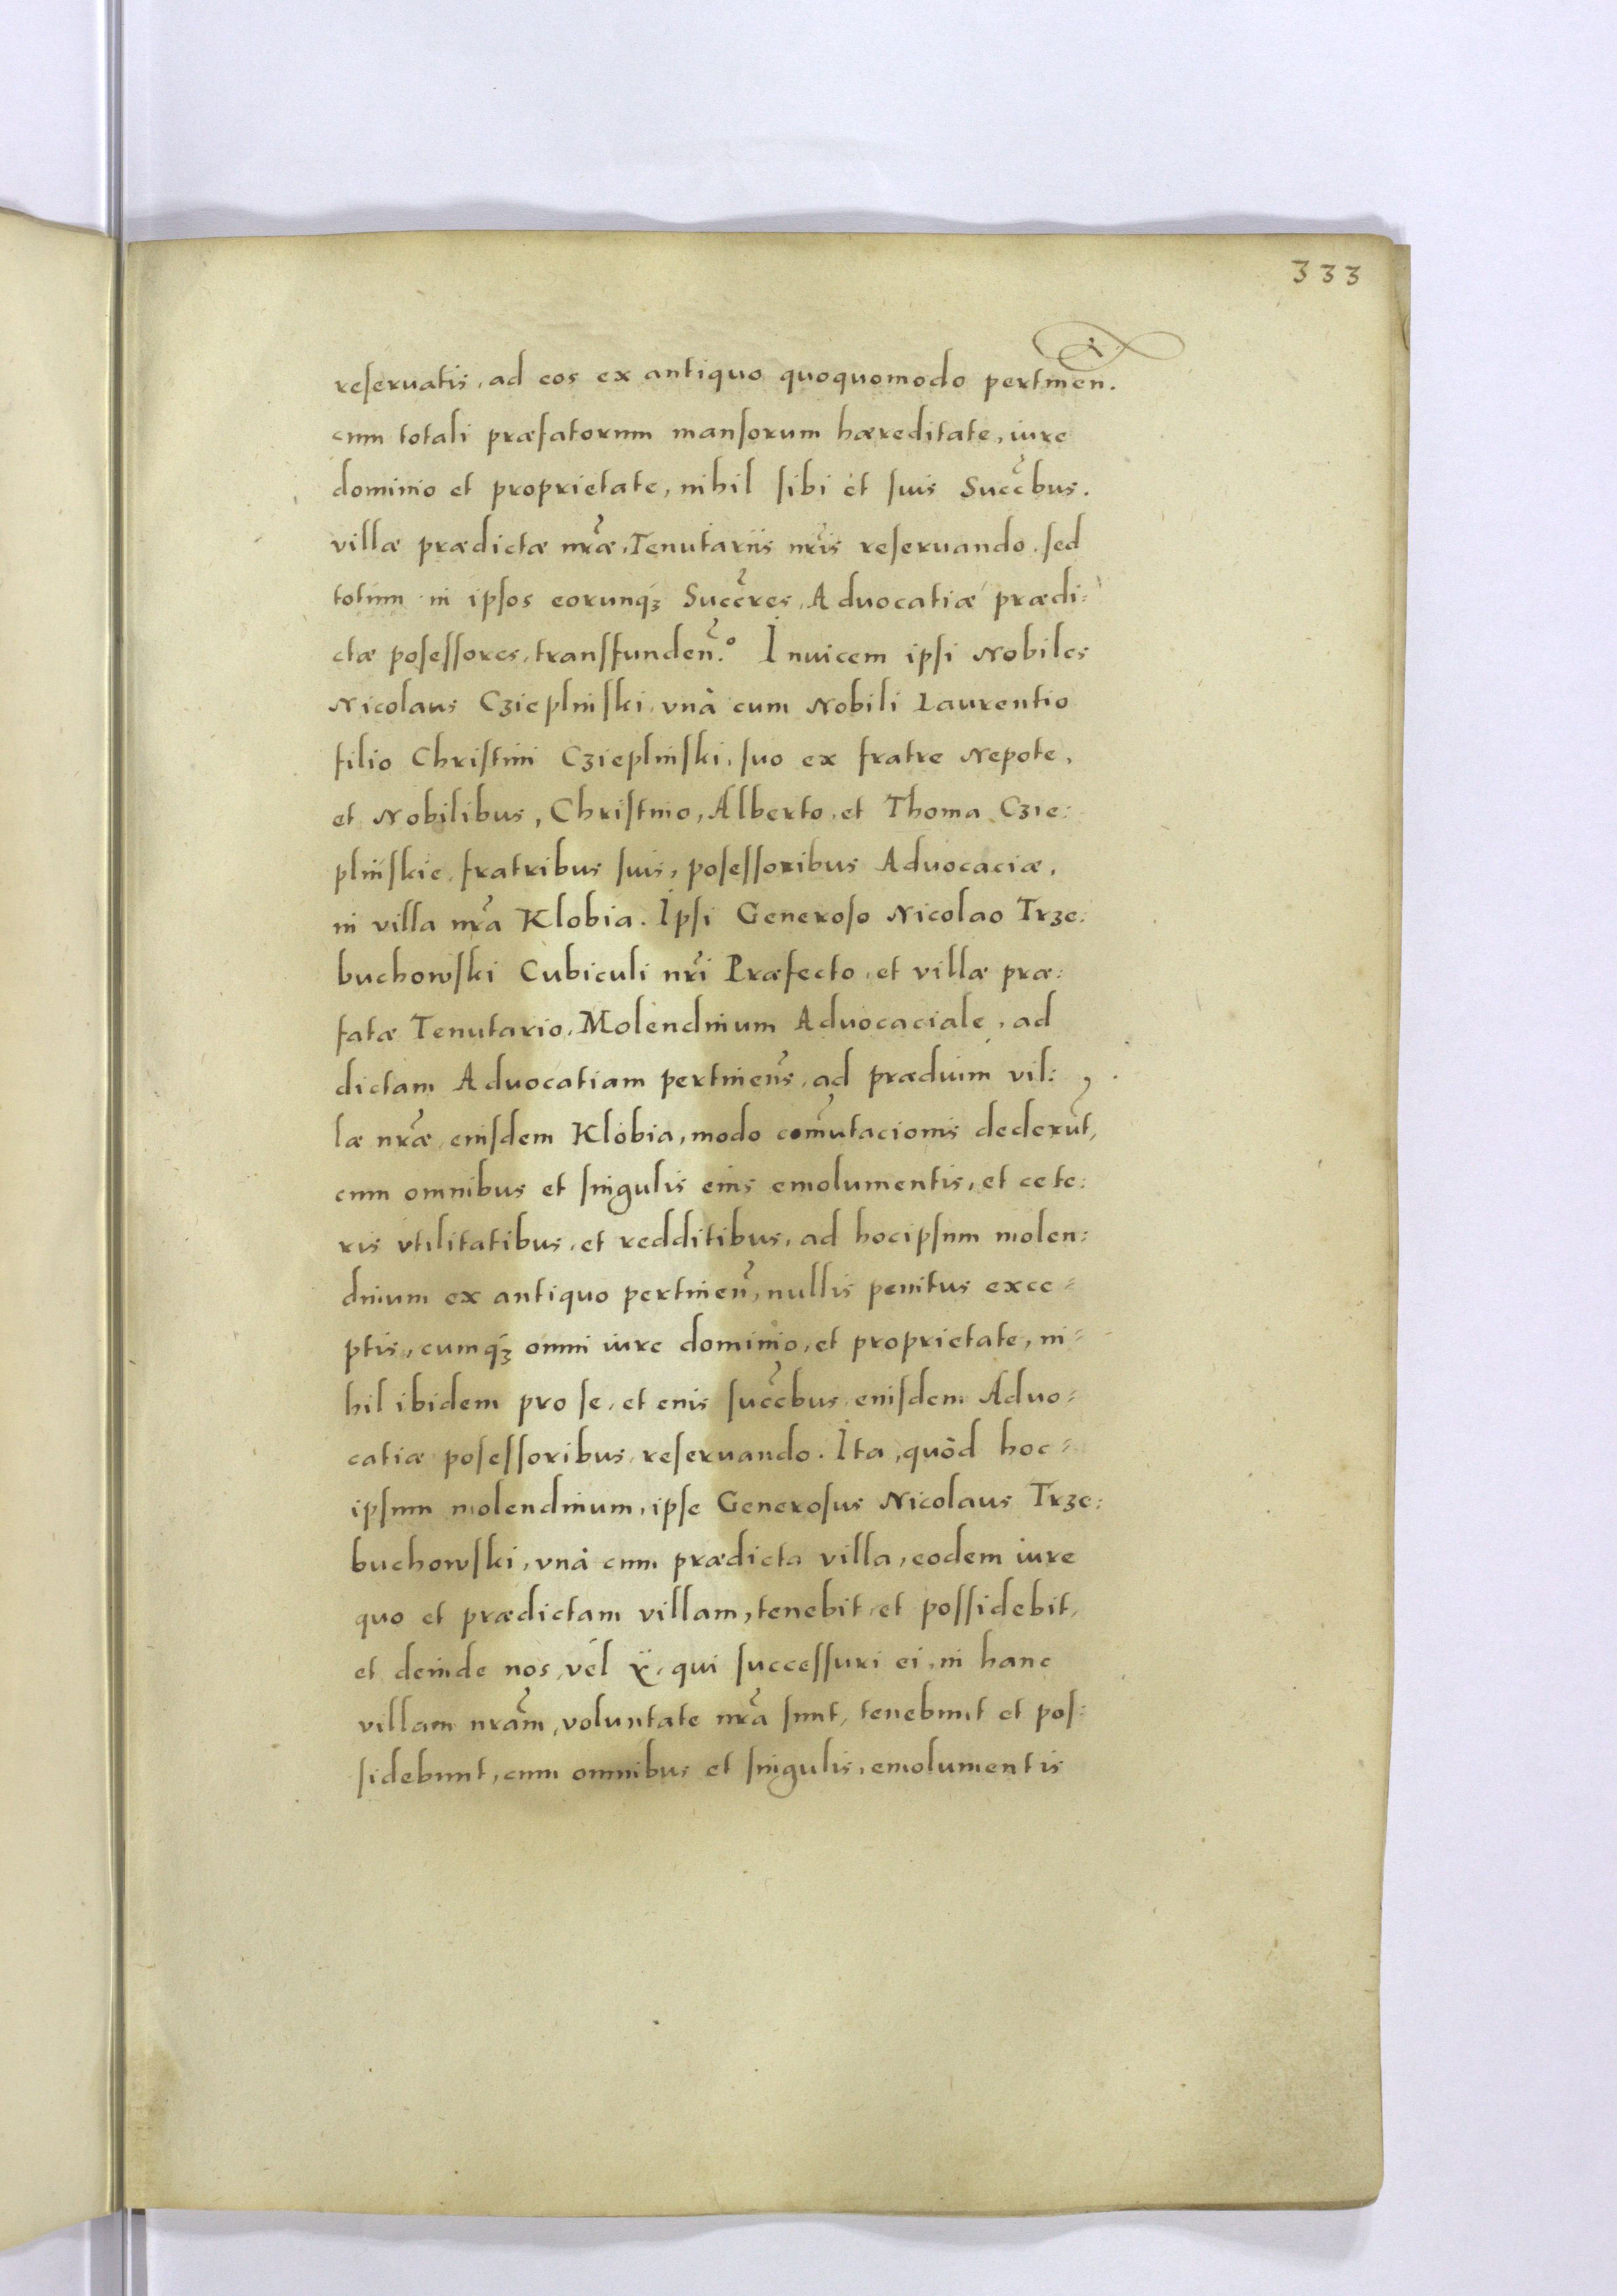 333
reseruatis, ad eos ex antiquo quoquomodo pertinen̄.
cum totali præfatorum mansorum hæreditate, iure
dominio et proprietate, nihil sibi et suis Succ̃bus.
villæ prædictæ nr̃æ, Tenutariis nr̃is reseruando, sed
totum in ipsos eorunqꝫ Succ̃res, Aduocatiæ prædi:
ctæ posessores, transfunden̄. Inuicem ipsi Nobiles
Nicolaus Czieplinski, vnà cum Nobili Laurentio
filio Christini Cziepliński, suo ex fratre Nepote,
et Nobilibus, Christino, Alberto, et Thoma Czie:
plinskie, fratribus suis, posessoribus Aduocaciæ,
in villa nr̃a Klobia. Ipsi Generoso Nicolao Trze:
buchowski Cubiculi nr̃i Præfecto, et villæ præ:
fatæ Tenutario, Molendinum Aduocaciale, ad
dictam Aduocatiam pertinen̄s, ad prædium vil:
læ nr̃æ, eiusdem Klobia, modo com̃utacionis dederũt,
cum omnibus et singulis eius emolumentis, et cete:
ris vtilitatibus, et redditibus, ad hocipsum molen:
dinum ex antiquo pertinen̄, nullis penitus exce=
ptis, cumqꝫ omni iure dominio, et proprietate, ni=
hil ibidem pro se, et euis succ̃bus, eiusdem Aduo=
catiæ posessoribus, reseruando. Ita, quòd hoc=
ipsum molendinum, ipse Generosus Nicolaus Trze:
buchowski, vnà cum prædicta villa, eodem iure
quo et prædictam villam, tenebit, et possidebit,
et deinde nos, vel ÿ, qui successuri ei, in hanc
villam nr̃am, voluntate nr̃a sunt, tenebunt et pos:
sidebunt, cum omnibus et singulis, emolumentis